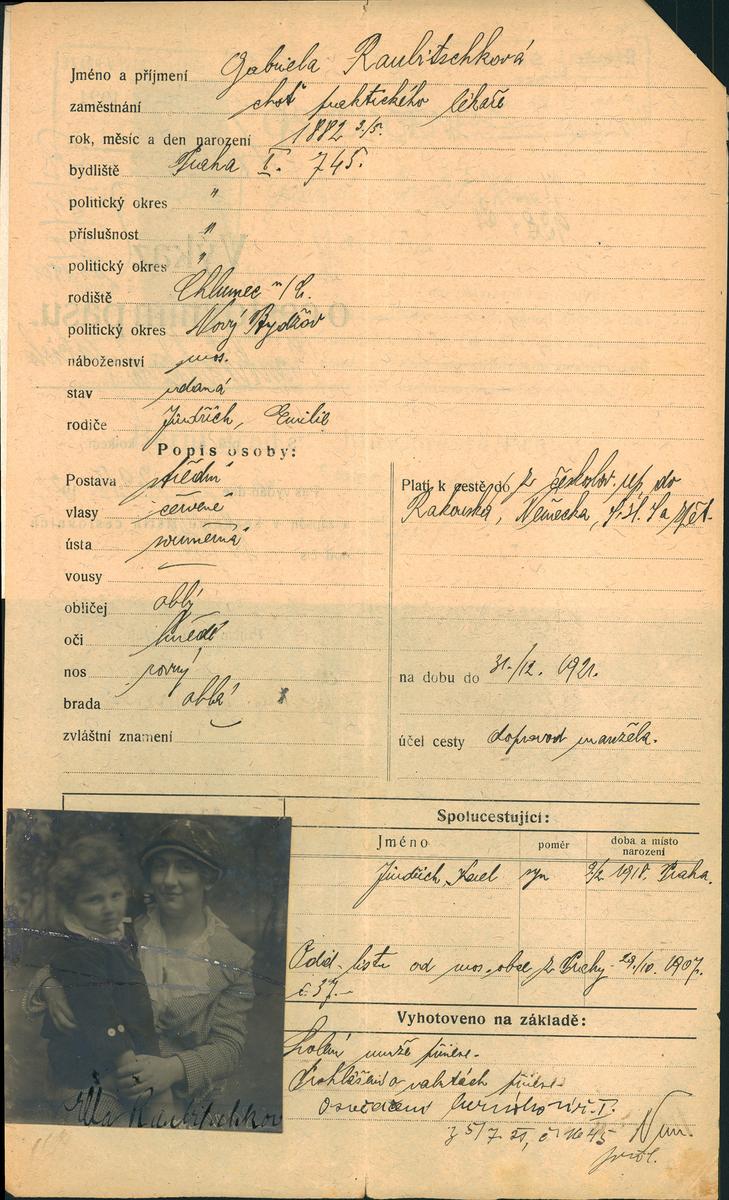 Jméno a příjmení Gabriela Raubitschková
zaměstnání choť praktického lékaře
rok, měsíc a den narození 1882 3/5.
bydliště Praha I. 745.
politický okres "
příslušnost "
politický okres "
rodiště Chlumec n/C.
politický okres Nový Bydžov
náboženství mos.
stav vdaná
rodiče Jindřich, Emilie
Popis osoby:
Postava střední
vlasy červené
ústa souměrná
vousy
obličej oblý
oči hnědé
nos rovný
brada oblá
zvláštní znamení
Platí k cestě do z českoslov. rep. do
Rakouska, Německa,
na dobu do 31./12. 1921.
účel cesty doprovod manžela.
Spolucestující:
Jméno poměr doba a místo narození
Jindřich Karel syn 2/2 1918. Praha.
Odd. listu od mos. obce z Prahy 29./10. 1907.
č 37.-
Vyhotoveno na základě:
Svolení muže
Prohlášení o valutách
Osvědčení
z 5/7 21, č 1645
Ella Raubitschkov